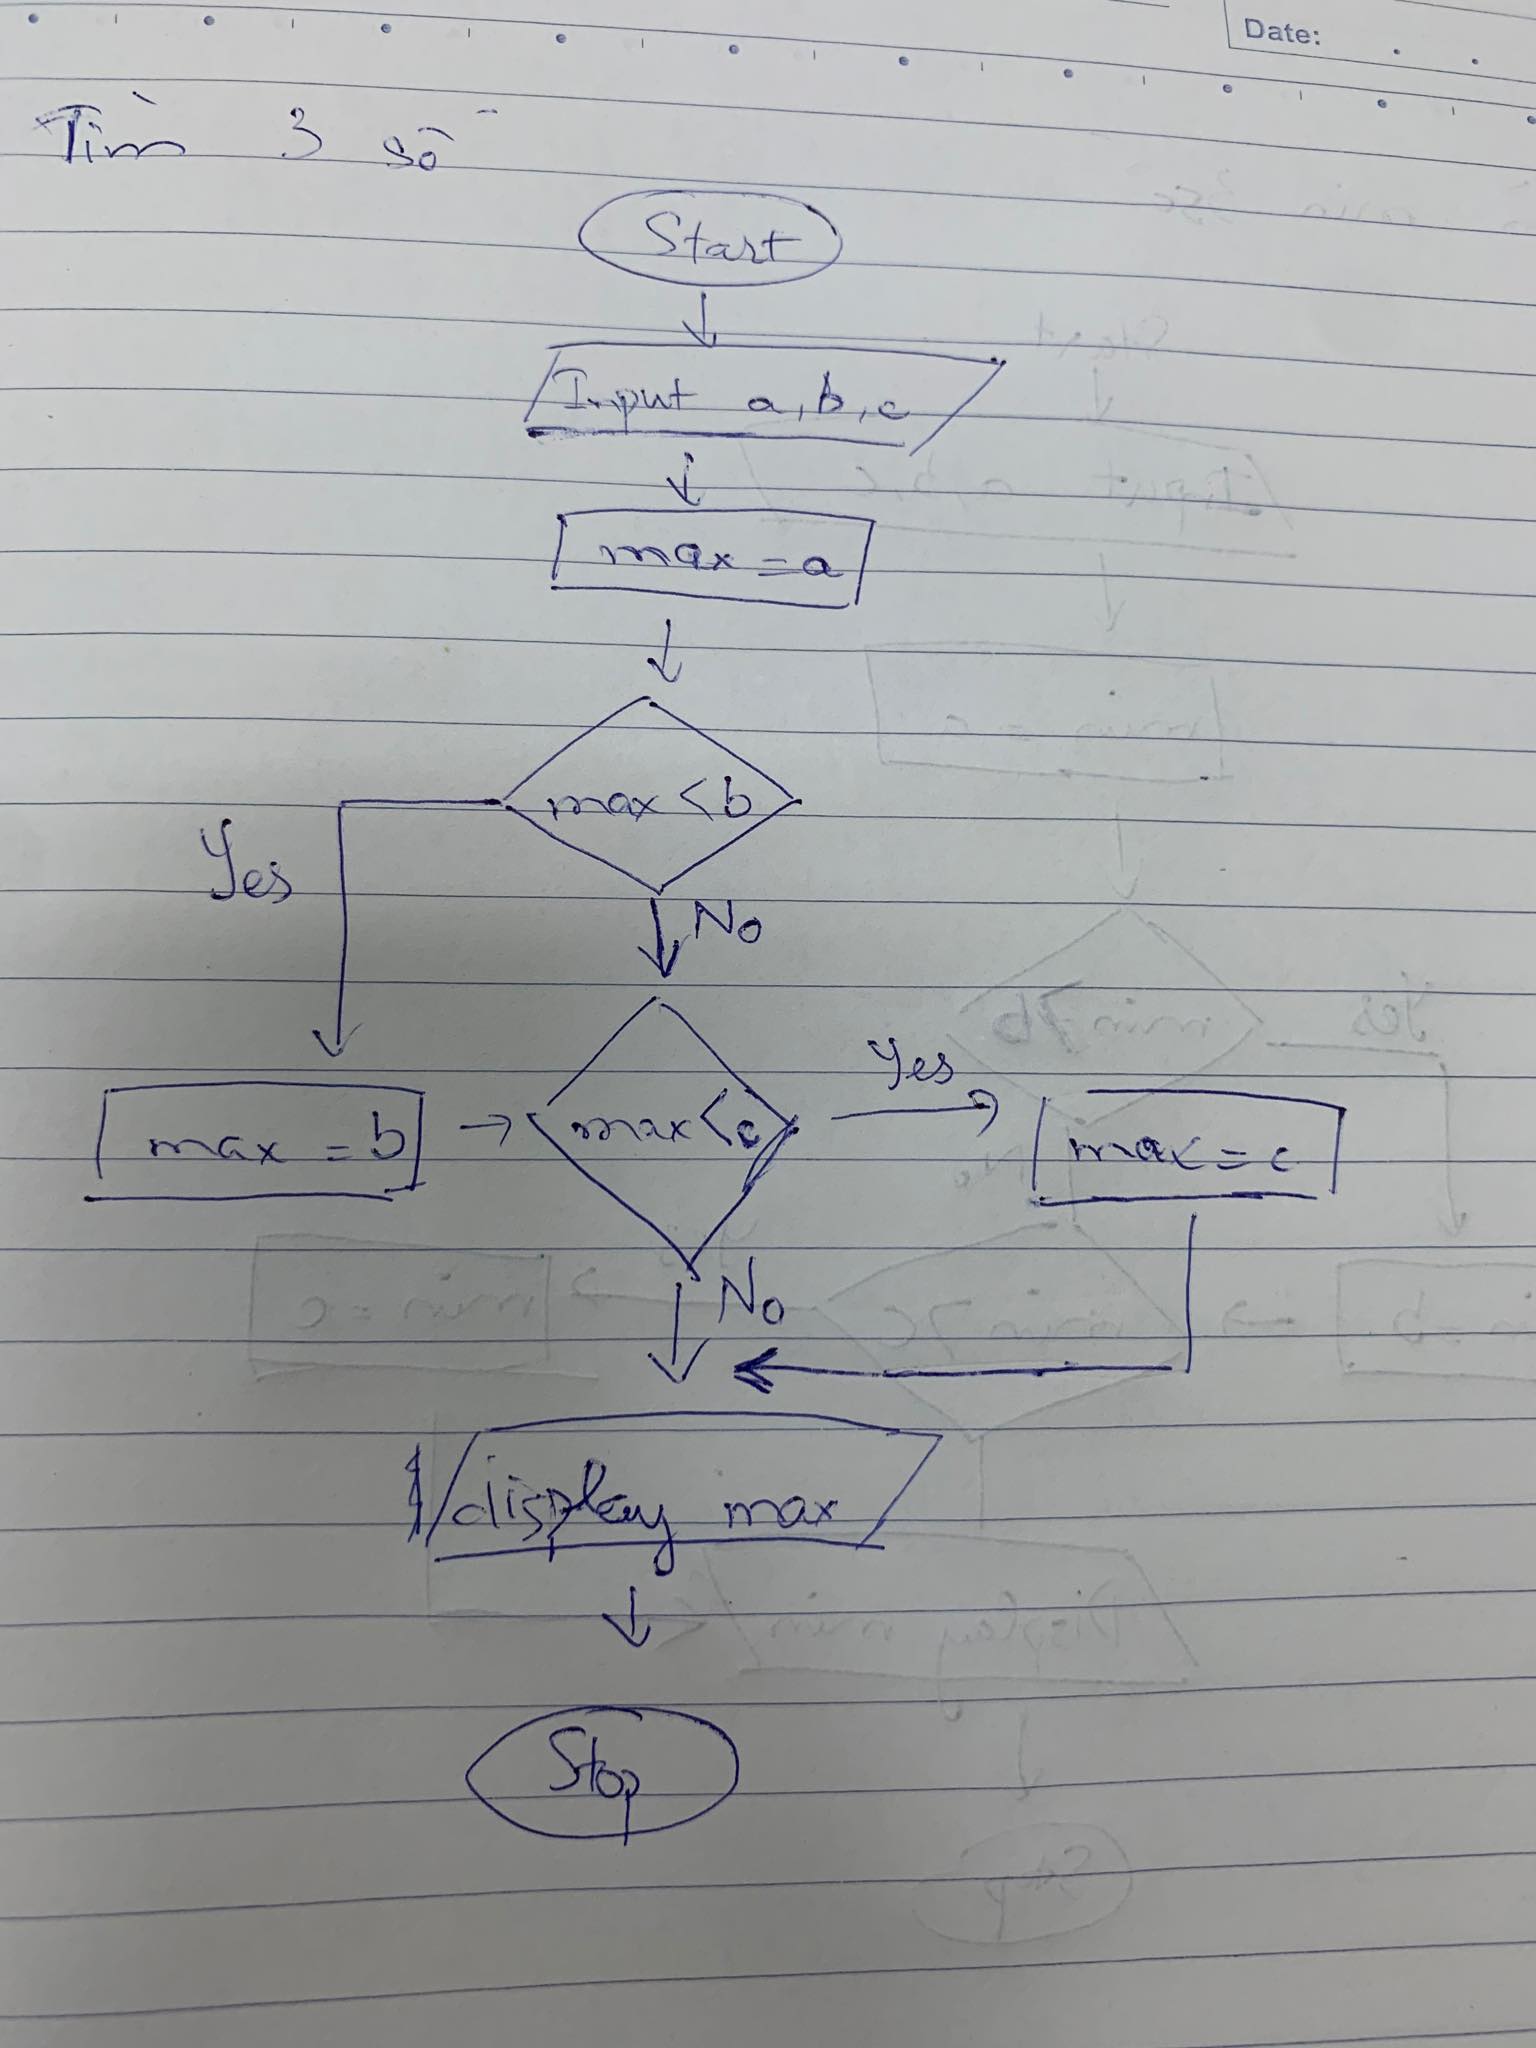 Date:
Tìm 3 số
Start
Input a,b,c
max = a
max < b
Yes
No
max = b
max < c
Yes
max = c
No
display max
Stop